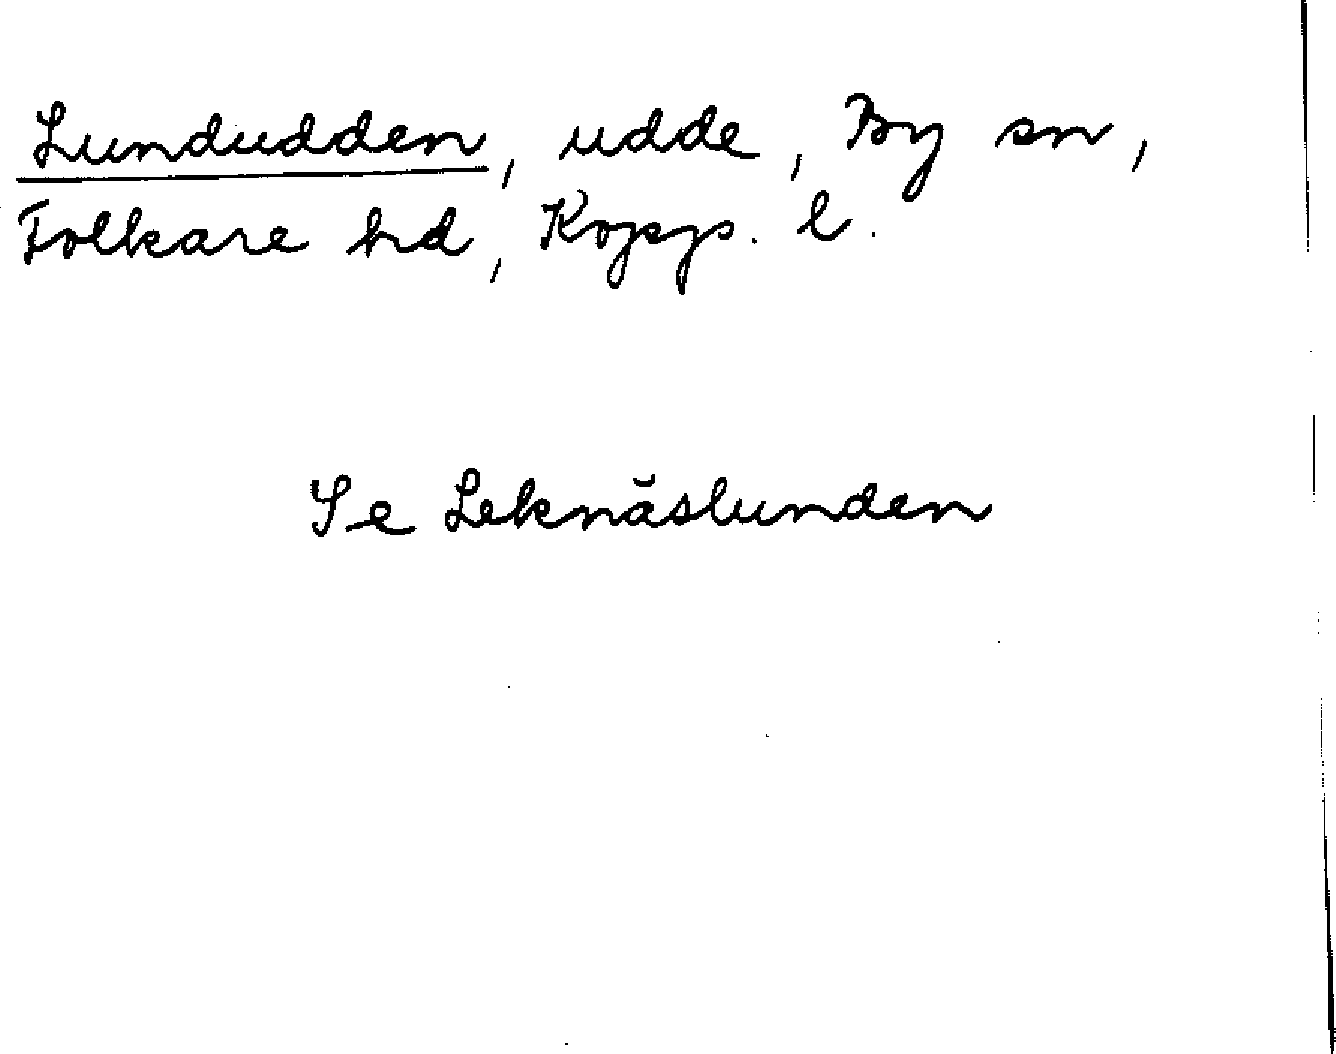 Lundudden, udde, By sn,
Folkare hd, Kopp. l.
Se Leknäslunden